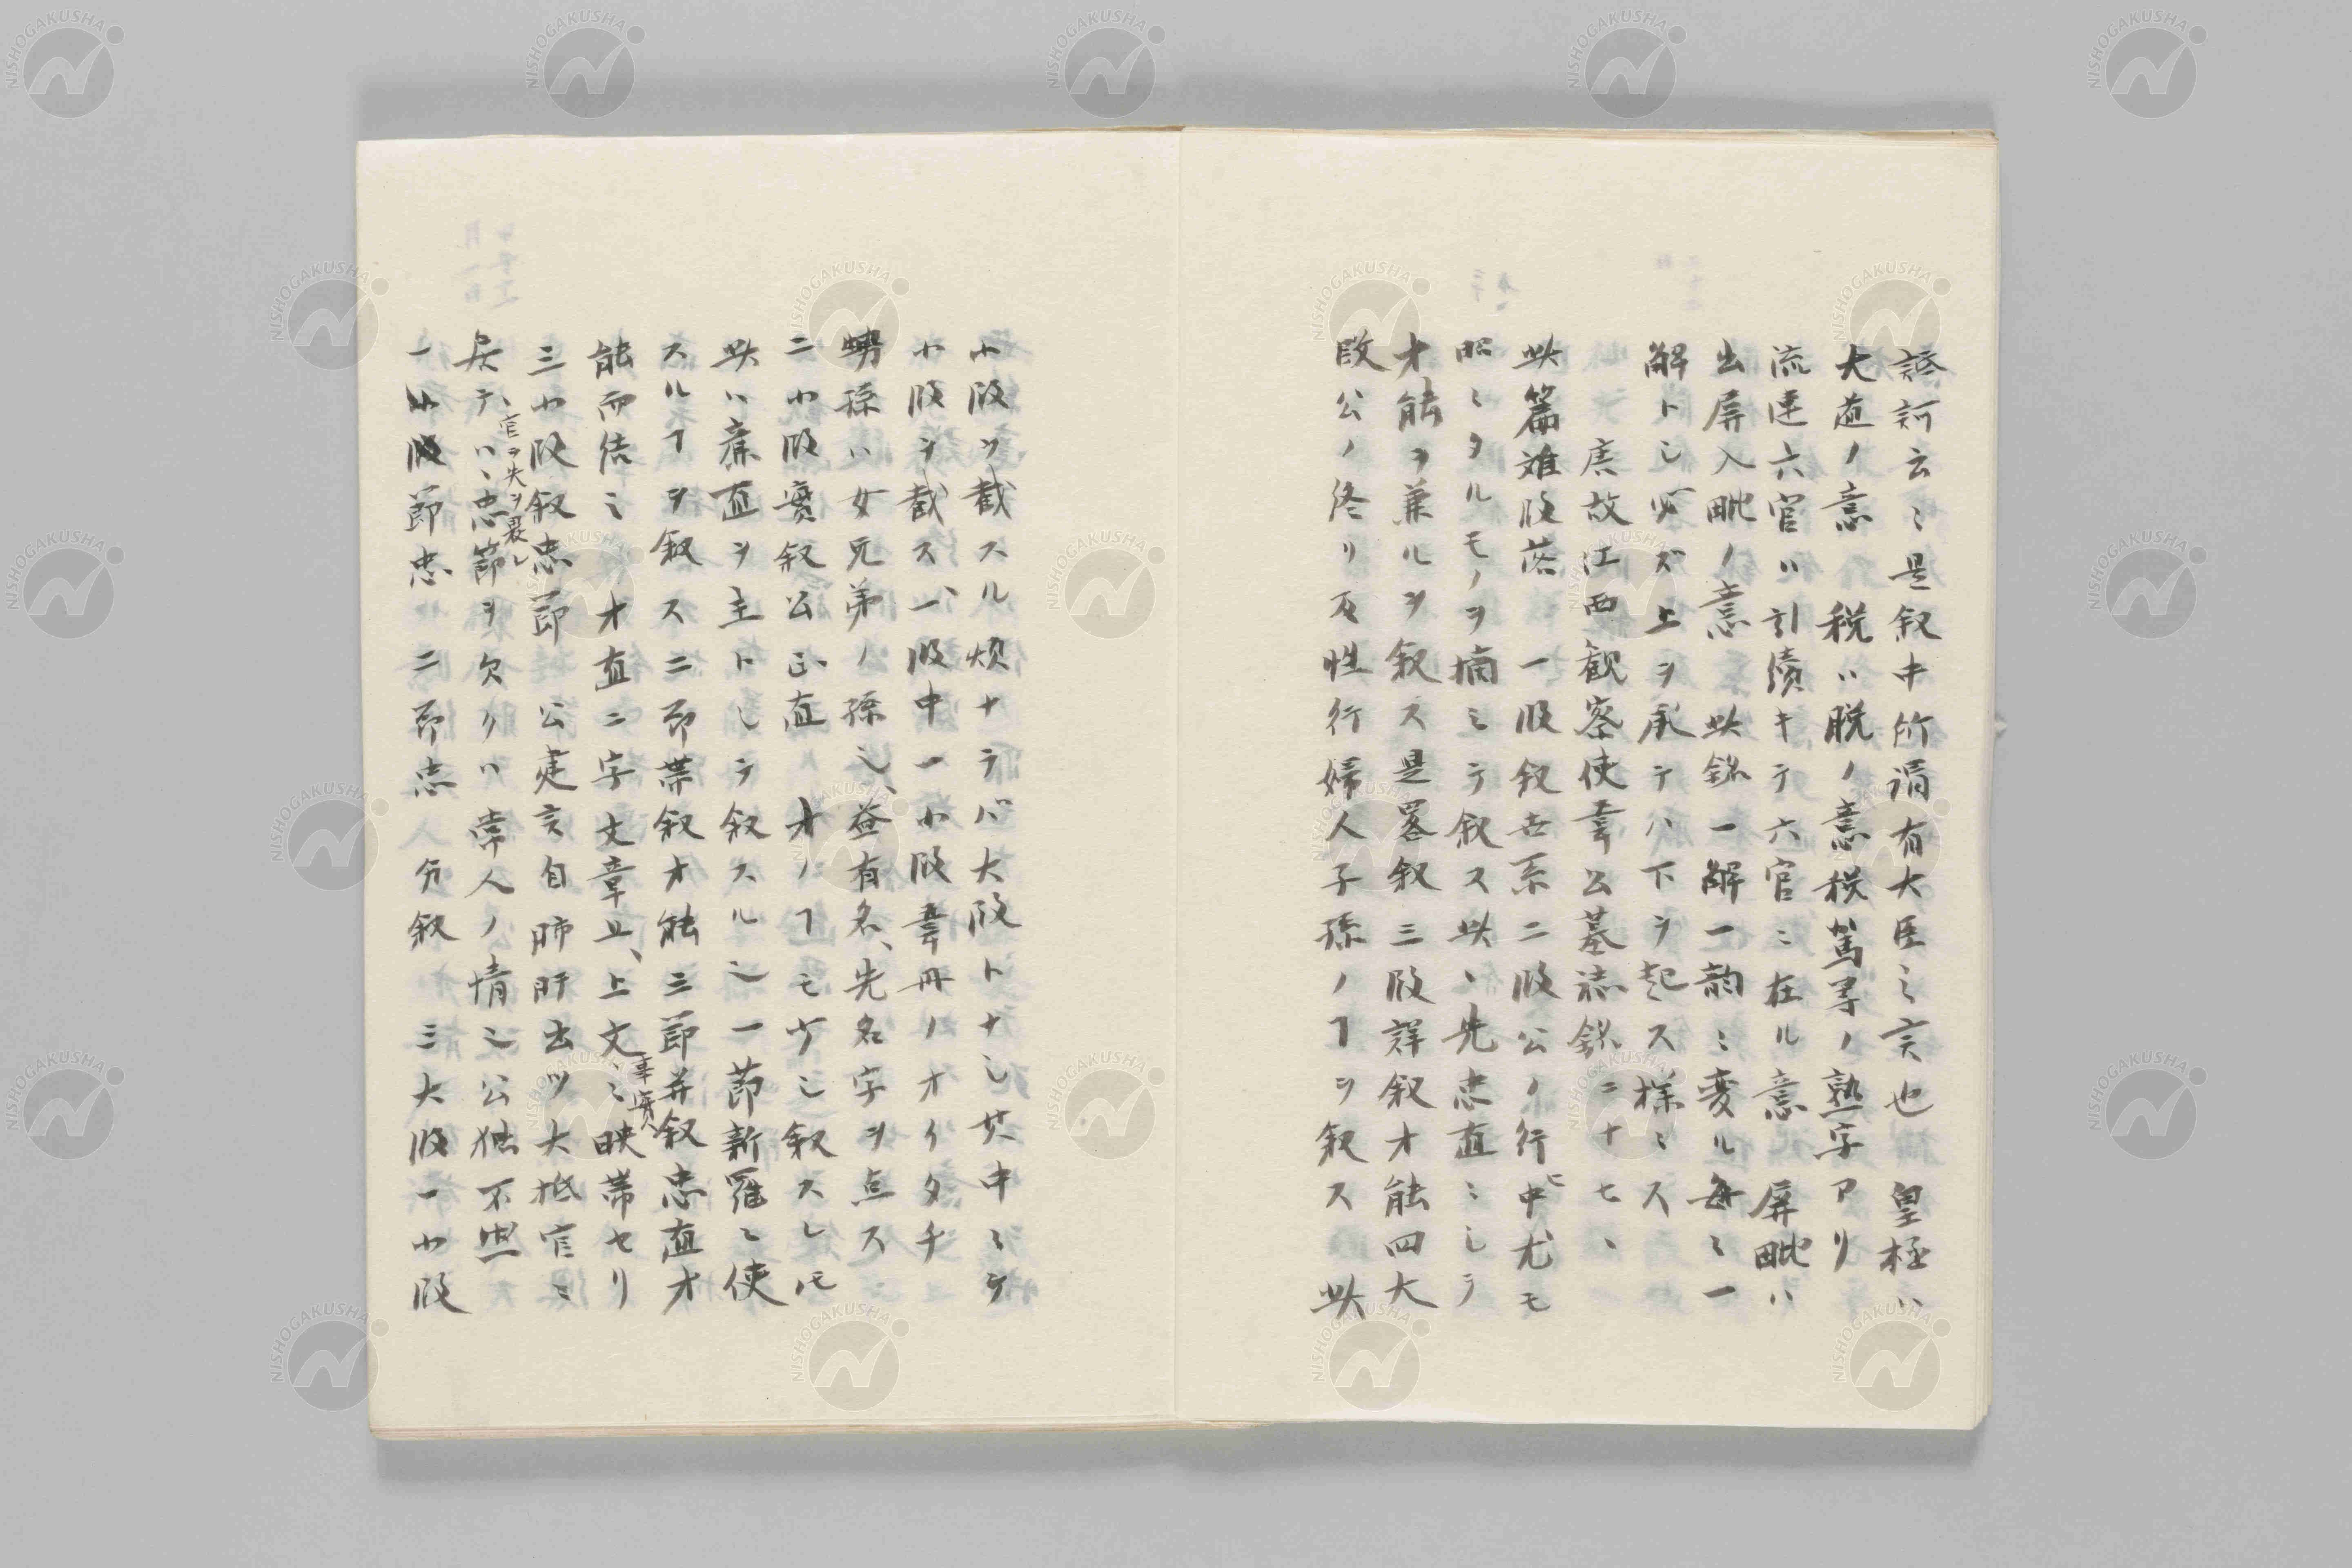 詆訶云〻是叙中所謂有大臣之言也　皇極ハ
大道ノ意　税ハ脱ノ意税駕等ノ熟字アリ
流連六官ハ引續キテ六官ニ在ル意　屏毗ハ
出屏入毗ノ意　此銘一解一韵ニ変ル毎ニ一
解トシ必ズ上ヲ承テハ下ヲ起ス様ニス
唐故江西観察使韋公墓誌銘二十七、
此篇難段落　一段叙世系二段公ノ行ヒ中尤モ
昭ミタルモノヲ摘ミテ叙ス此ハ先忠直ニシテ
才能ヲ兼ルヲ叙ス是畧叙三段詳叙才能四大
段公ノ終リ及性行婦人子孫ノヿヲ叙ス　此
小段ヲ截スル煩ナラバ大段トナシ其中ニテ
小段ヲ截ス、一段中一小段韋丹ノオイタチ
甥孫ハ女兄弟ノ孫也、益有名、先名字ヲ点ス
二小段實叙公正直　才ノヿモ少シ叙スレ𪜈
此ハ亷直ヲ主トシテ叙スル也一節新羅ニ使
スルヿヲ叙ス二節帯叙才能三節并叙忠直才
能而結ミ　才直二字文章止、上文ニ映帯セリ
幸實入
三小段叙忠節　公建言自肺肝出ツ大抵官ニ
居テハ、忠節ヲ欠クハ常人ノ情也公独不然
官ヲ失ヲ畏レ
一小段節忠　二節忠　分叙　三大段一小段